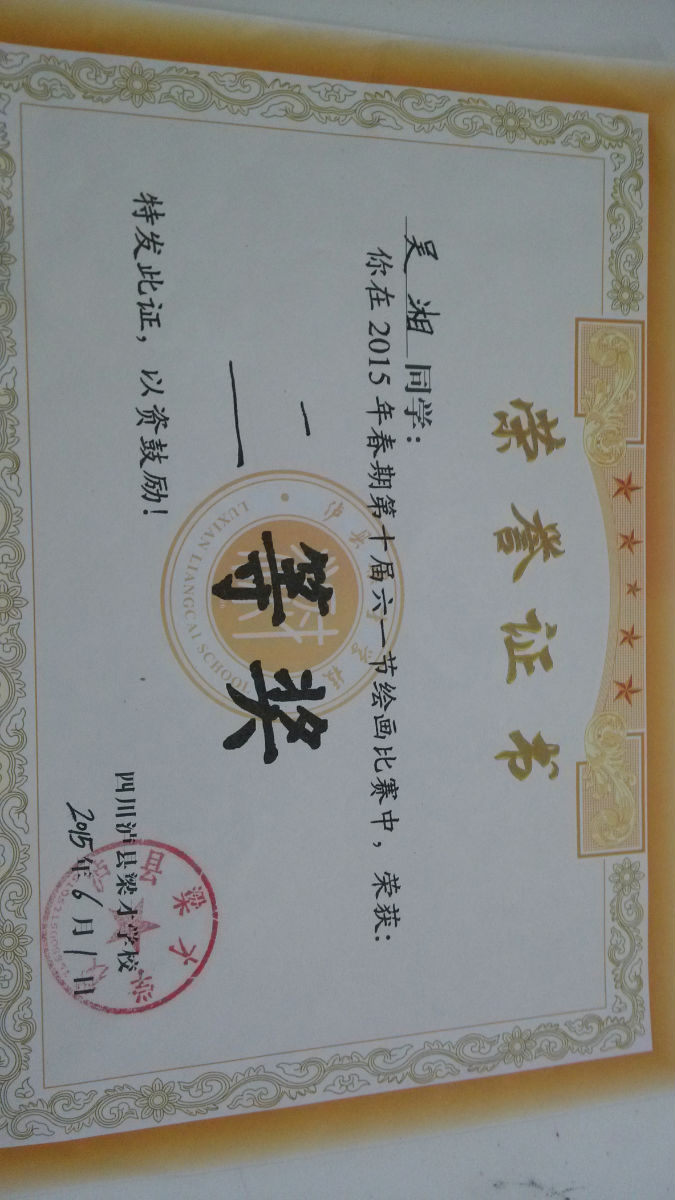 荣誉证书
吴湘同学：
你在2015年春期第十届六一节绘画比赛中，荣获：
二等奖
特发此证，以资鼓励！
四川泸县梁才学校
2015年6月1日
LUXIAN LIANGCAI SCHOOL